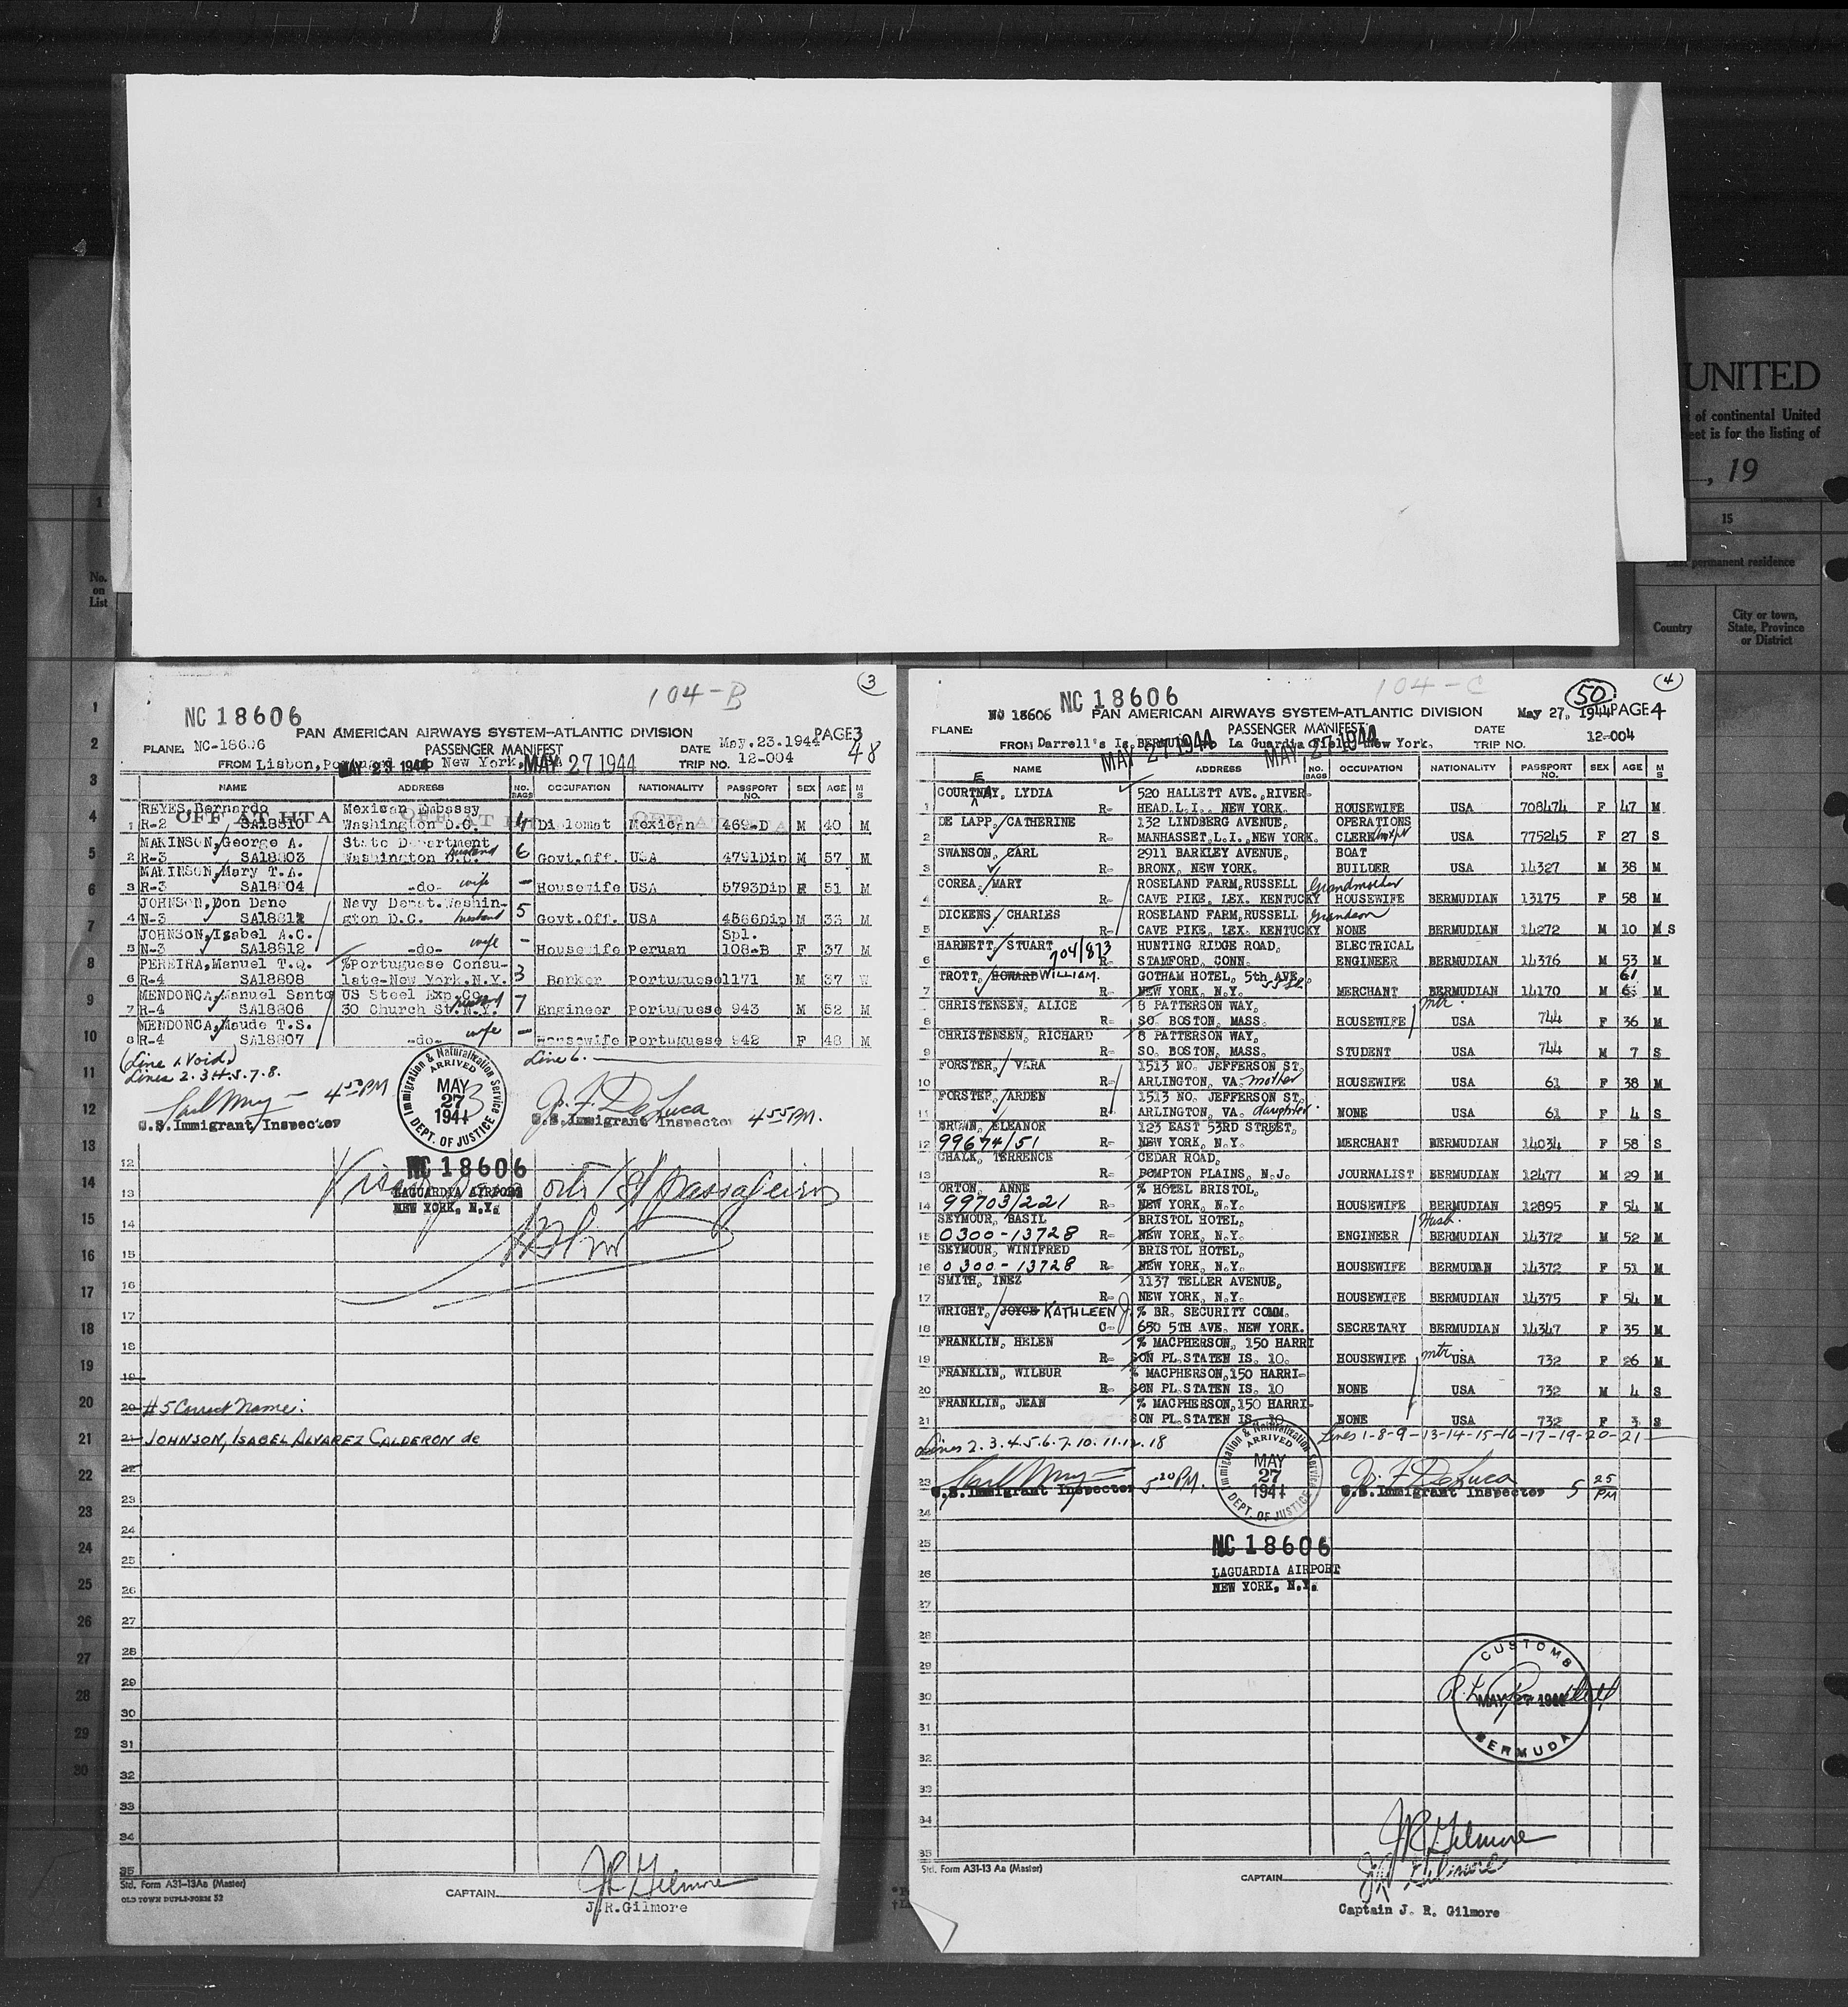 UNITED
of continental United
eet is for the listing of
, 19
15
permanent residence
No.
on
List
Country
City or town,
State, Province
or District
1
2
3
4
5
6
7
8
9
10
11
12
13
14
15
16
17
18
19
20
21
22
23
24
25
26
27
28
29
30
104-B
3
NC 18606
PAN AMERICAN AIRWAYS SYSTEM-ATLANTIC DIVISION
PAGE 3
48
PLANE NC-18606 PASSENGER MANIFEST DATE May.23.1944
FROM Lisbon, MAY 23 1944 New York, MAY 27 1944 TRIP NO. 12-004
NAME ADDRESS NO. BAGS OCCUPATION NATIONALITY PASSPORT NO. SEX AGE M S
OFF AT HTA
REYES, Bernardo Mexican Embassy
1 R-2 SA18810 Washington D.C. 4 Diplomat Mexican 469-D M 40 M
MAKINSON, George A. State Department
2 R-3 SA18803 Washington D.C. husband 6 Govt.Off. USA 4791Dip M 57 M
MAKINSON, Mary T.A.
3 R-3 SA18804 -do- wife - Housewife USA 5793Dip F 51 M
JOHNSON, Don Dano Navy Depat.Washin-
4 N-3 SA18812 gton D.C. husband 5 Govt.Off. USA 4566Dip M 33 M
JOHNSON, Isabel A.C. Spl.
5 N-3 SA18812 -do- wife - Housewife Peruan 108-B F 37 M
PEREIRA, Manuel T.Q. %Portuguese Consu-
6 R-4 SA18808 late-New York.N.Y. 3 Banker Portuguese 1171 M 37 W
MENDONCA, Manuel Santo US Steel Exp.Co.
7 R-4 SA18806 30 Church St.N.Y. husband 7 Engineer Portuguese 943 M 52 M
MENDONCA, Maude T.S.
8 R-4 SA18807 -do- wife - Housewife Portuguese 942 F 48 M
(Line 1. Void.) Line 6.
Lines 2.3.4.5.7.8.
4 50 PM
U.S.Immigrant Inspector
Immigration & Naturalization Service
ARRIVED
MAY
27
1944
DEPT. OF JUSTICE
Jr. F DeLuca
U.S.Immigrant Inspector 4 55 PM.
NC 18606
LAGUARDIA AIRPORT
NEW YORK, N.Y.
12
13
14
15
16
17
18
19
20 #5 Correct name:
21 JOHNSON, ISABEL ALVAREZ CALDERON de
22
23
24
25
26
27
28
29
30
31
32
33
34
35
Std. Form A31-13Aa (Master)
OLD TOWN DUPLI-FORM 52
CAPTAIN JR Gilmore
J.R.Gilmore
104-C
4
50
NC 18606
PLANE NC 18606 PAN AMERICAN AIRWAYS SYSTEM-ATLANTIC DIVISION May 27, 1944 PAGE 4
PASSENGER MANIFEST DATE
FROM Darrell's Is.BERMUDA MAY 27 1944 La Guardia Field, New York. MAY 27 1944 TRIP NO. 12-004
NAME ADDRESS NO. BAGS OCCUPATION NATIONALITY PASSPORT NO. SEX AGE M S
E
COURTNAY, LYDIA 520 HALLETT AVE.,RIVER-
1 R- HEAD.L.I., NEW YORK. HOUSEWIFE USA 708474 F 47 M
DE LAPP, CATHERINE 132 LINDBERG AVENUE, OPERATIONS
2 R- MANHASSET.L.I., NEW YORK. CLERK USA 775245 F 27 S
SWANSON, CARL 2911 BARKLEY AVENUE, BOAT
3 R- BRONX, NEW YORK. BUILDER USA 14327 M 38 M
COREA, MARY ROSELAND FARM,RUSSELL Grandmother
4 R- CAVE PIKE, LEX. KENTUCKY HOUSEWIFE BERMUDIAN 13175 F 58 M
DICKENS, CHARLES ROSELAND FARM,RUSSELL Grandson
5 R- CAVE PIKE, LEX. KENTUCKY NONE BERMUDIAN 14272 M 10 M S
HARNETT, STUART 704/873 HUNTING RIDGE ROAD, ELECTRICAL
6 R- STAMFORD, CONN. ENGINEER BERMUDIAN 14376 M 53 M
TROTT, HOWARD WILLIAM. GOTHAM HOTEL, 5th AVE, 61
7 R- NEW YORK, N.Y. MERCHANT BERMUDIAN 14170 M M
CHRISTENSEN, ALICE 8 PATTERSON WAY, mtr.
8 R- SO. BOSTON, MASS. HOUSEWIFE USA 744 F 36 M
CHRISTENSEN, RICHARD 8 PATTERSON WAY,
9 R- SO. BOSTON, MASS. STUDENT USA 744 M 7 S
FORSTER, VARA 1513 NO. JEFFERSON ST,
10 R- ARLINGTON, VA. mother HOUSEWIFE USA 61 F 38 M
FORSTER, ARDEN 1513 NO. JEFFERSON ST,
11 R- ARLINGTON, VA. daughter. NONE USA 61 F 4 S
BROWN, ELEANOR 123 EAST 53RD STREET,
12 99674/51 R- NEW YORK, N.Y. MERCHANT BERMUDIAN 14034 F 58 S
CHALK, TERRENCE CEDAR ROAD,
13 R- POMPTON PLAINS, N.J. JOURNALIST BERMUDIAN 12477 M 29 M
ORTON, ANNE % HOTEL BRISTOL,
14 99703/221 R- NEW YORK, N.Y. HOUSEWIFE BERMUDIAN 12895 F 54 M
SEYMOUR, BASIL BRISTOL HOTEL, Husb.
15 0300-13728 R- NEW YORK, N.Y. ENGINEER BERMUDIAN 14372 M 52 M
SEYMOUR, WINIFRED BRISTOL HOTEL,
16 0300-13728 R- NEW YORK, N.Y. HOUSEWIFE BERMUDIAN 14372 F 51 M
SMITH, INEZ 1137 TELLER AVENUE,
17 R- NEW YORK, N.Y. HOUSEWIFE BERMUDIAN 14375 F 54 M
WRIGHT, JOYCE KATHLEEN J % BR. SECURITY COMM.
18 C- 650 5TH AVE, NEW YORK. SECRETARY BERMUDIAN 14347 F 35 M
FRANKLIN, HELEN % MACPHERSON, 150 HARRI
19 R- SON PL.STATEN IS. 10. HOUSEWIFE mtr. USA 732 F 26 M
FRANKLIN, WILBUR % MACPHERSON,150 HARRI-
20 R- SON PL.STATEN IS. 10 NONE USA 732 M 4 S
FRANKLIN, JEAN % MACPHERSON,150 HARRI-
21 SON PL.STATEN IS. 10 NONE USA 732 F 3 S
Lines 2.3.4.5.6.7.10.11.12.18 Lines 1-8-9-13-14-15-16-17-19-20-21
U.S.Immigrant Inspector 5 20 PM.
Immigration & Naturalization Service
ARRIVED
MAY
27
1944
DEPT. OF JUSTICE
Jr. F DeLuca
U.S.Immigrant Inspector 5 25 PM
NC 18606
LAGUARDIA AIRPORT
NEW YORK, N.Y.
23
24
25
26
27
28
29
30
31
32
33
34
35
CUSTOMS
MAY 27 1944
BERMUDA
Std. Form A31-13 Aa (Master)
JR Gilmore
CAPTAIN JR Gilmore
Captain J. R. Gilmore